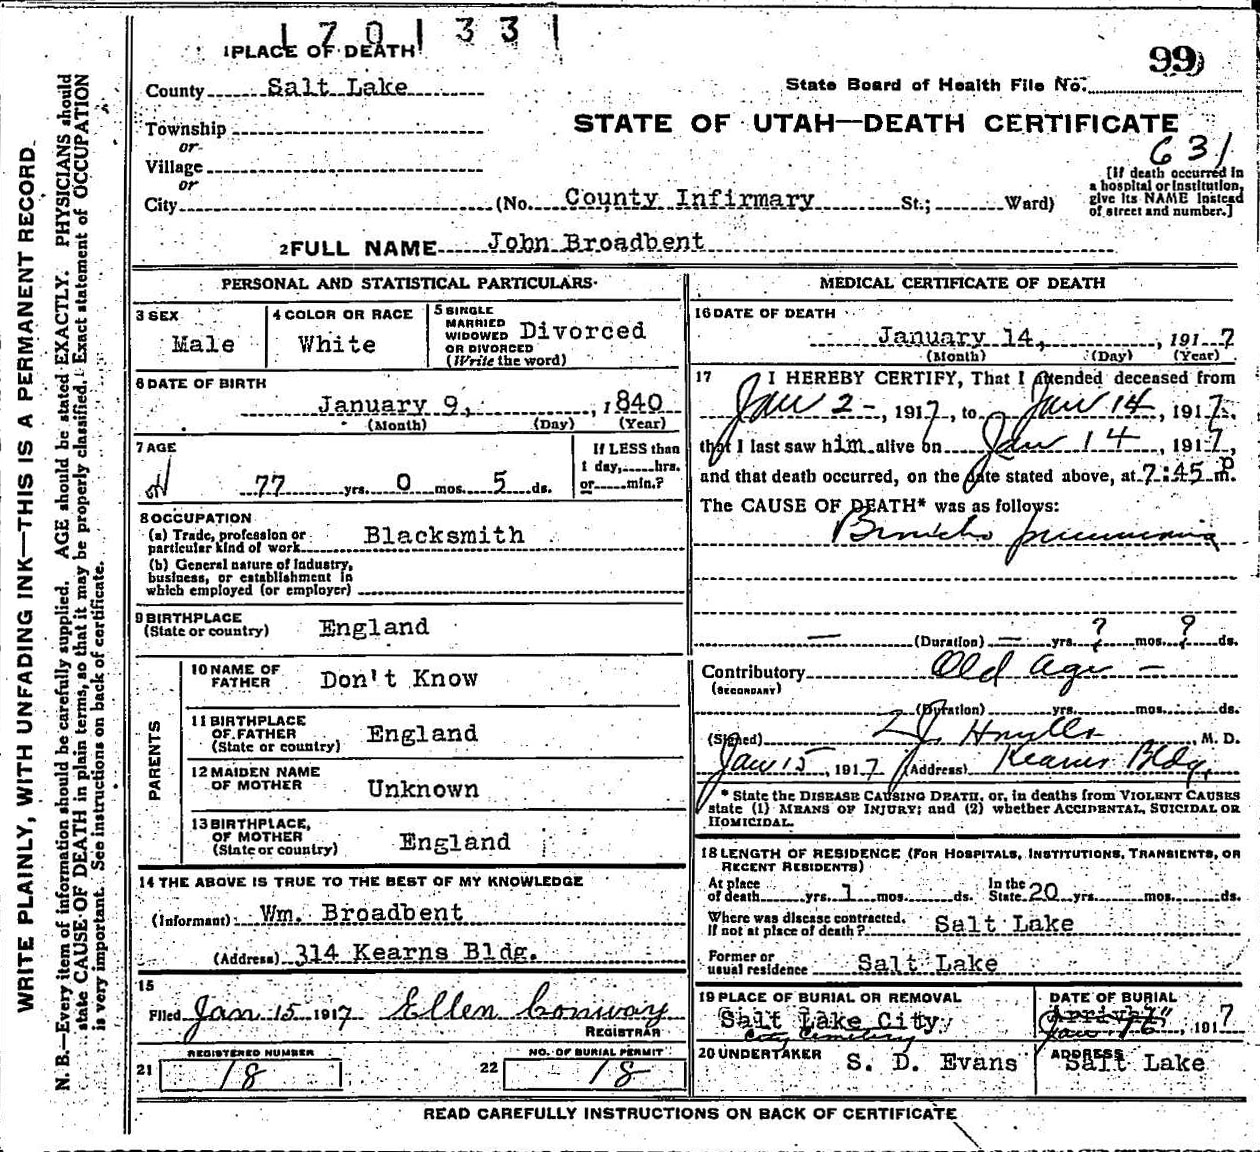 170133
1 PLACE OF DEATH
99
County Salt Lake
State Board of Health File No.
Township
or
STATE OF UTAH—DEATH CERTIFICATE
631
Village
or
City (No. County Infirmary St.; Ward)
[If death occurred in
a hospital or institution,
give its NAME instead
of street and number.]
2 FULL NAME John Broadbent
PERSONAL AND STATISTICAL PARTICULARS
3 SEX
Male
4 COLOR OR RACE
White
5 SINGLE
MARRIED
WIDOWED
OR DIVORCED
(Write the word)
Divorced
6 DATE OF BIRTH
January 9, , 1840
(Month) (Day) (Year)
7 AGE
77 yrs. 0 mos. 5 ds.
If LESS than
1 day, hrs.
or min.?
8 OCCUPATION
(a) Trade, profession or
particular kind of work Blacksmith
(b) General nature of Industry,
business, or establishment in
which employed (or employer)
9 BIRTHPLACE
(State or country) England
PARENTS
10 NAME OF
FATHER Don't Know
11 BIRTHPLACE
OF FATHER
(State or country) England
12 MAIDEN NAME
OF MOTHER Unknown
13 BIRTHPLACE,
OF MOTHER
(State or country) England
14 THE ABOVE IS TRUE TO THE BEST OF MY KNOWLEDGE
(Informant) Wm. Broadbent
(Address) 314 Kearns Bldg.
15
Filed Jan 15 1917 Ellen Conway
REGISTRAR
REGISTERED NUMBER
21 18
NO. OF BURIAL PERMIT
22 18
MEDICAL CERTIFICATE OF DEATH
16 DATE OF DEATH
January 14, , 1917
(Month) (Day) (Year)
17 I HEREBY CERTIFY, That I attended deceased from
Jan 2 - , 1917, to Jan 14 , 1917,
that I last saw him alive on Jan 14 , 1917,
and that death occurred, on the date stated above, at 7:45 P m.
The CAUSE OF DEATH* was as follows:
Broncho pneumonia
— (Duration) — yrs. ? mos. ? ds.
Contributory Old age —
(SECONDARY)
(Duration) yrs. mos. ds.
(Signed) M. D.
Jan 15, 1917 (Address) Kearns Bldg.
* State the DISEASE CAUSING DEATH, or, in deaths from VIOLENT CAUSES
state (1) MEANS OF INJURY; and (2) whether ACCIDENTAL, SUICIDAL OR
HOMICIDAL.
18 LENGTH OF RESIDENCE (FOR HOSPITALS, INSTITUTIONS, TRANSIENTS, OR
RECENT RESIDENTS)
At place
of death yrs. 1 mos. ds. In the
State 20 yrs. mos. ds.
Where was disease contracted.
If not at place of death? Salt Lake
Former or
usual residence Salt Lake
19 PLACE OF BURIAL OR REMOVAL
Salt Lake City,
City Cemetery
DATE OF BURIAL
"Arrival"
Jan 16 , 1917
20 UNDERTAKER S. D. Evans
ADDRESS
Salt Lake
READ CAREFULLY INSTRUCTIONS ON BACK OF CERTIFICATE
WRITE PLAINLY, WITH UNFADING INK—THIS IS A PERMANENT RECORD.
N. B.—Every item of information should be carefully supplied. AGE should be stated EXACTLY. PHYSICIANS should
state CAUSE OF DEATH in plain terms, so that it may be properly classified. Exact statement of OCCUPATION
is very important. See instructions on back of certificate.